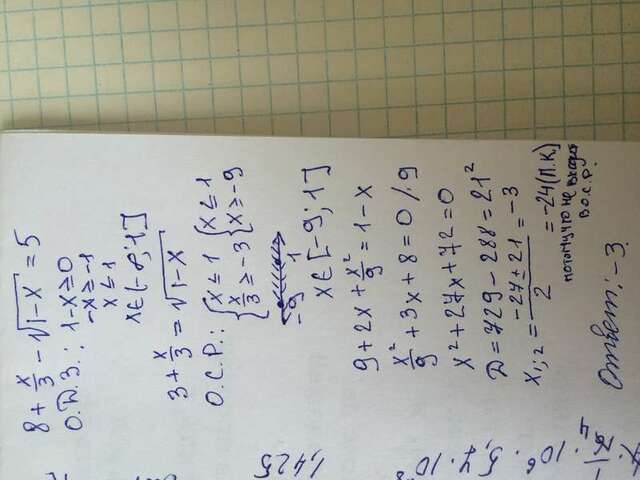 8 + x/3 - √1-x = 5
О.Д.З.: 1-x ≥ 0
-x ≥ -1
x ≤ 1
x ∈ [-∞; 1]
3 + x/3 = √1-x
О.С.Р.: { x ≤ 1 { x ≤ 1
x/3 ≥ -3 x ≥ -9
-9 1
x ∈ [-9; 1]
9 + 2x + x²/9 = 1 - x
x²/9 + 3x + 8 = 0 /·9
x² + 27x + 72 = 0
D = 729 - 288 = 21²
x₁;₂ = -27 ± 21 / 2 = -3
= -24 (П.К.)
потому что не входит
в О.С.Р.
Ответ: -3
1,425